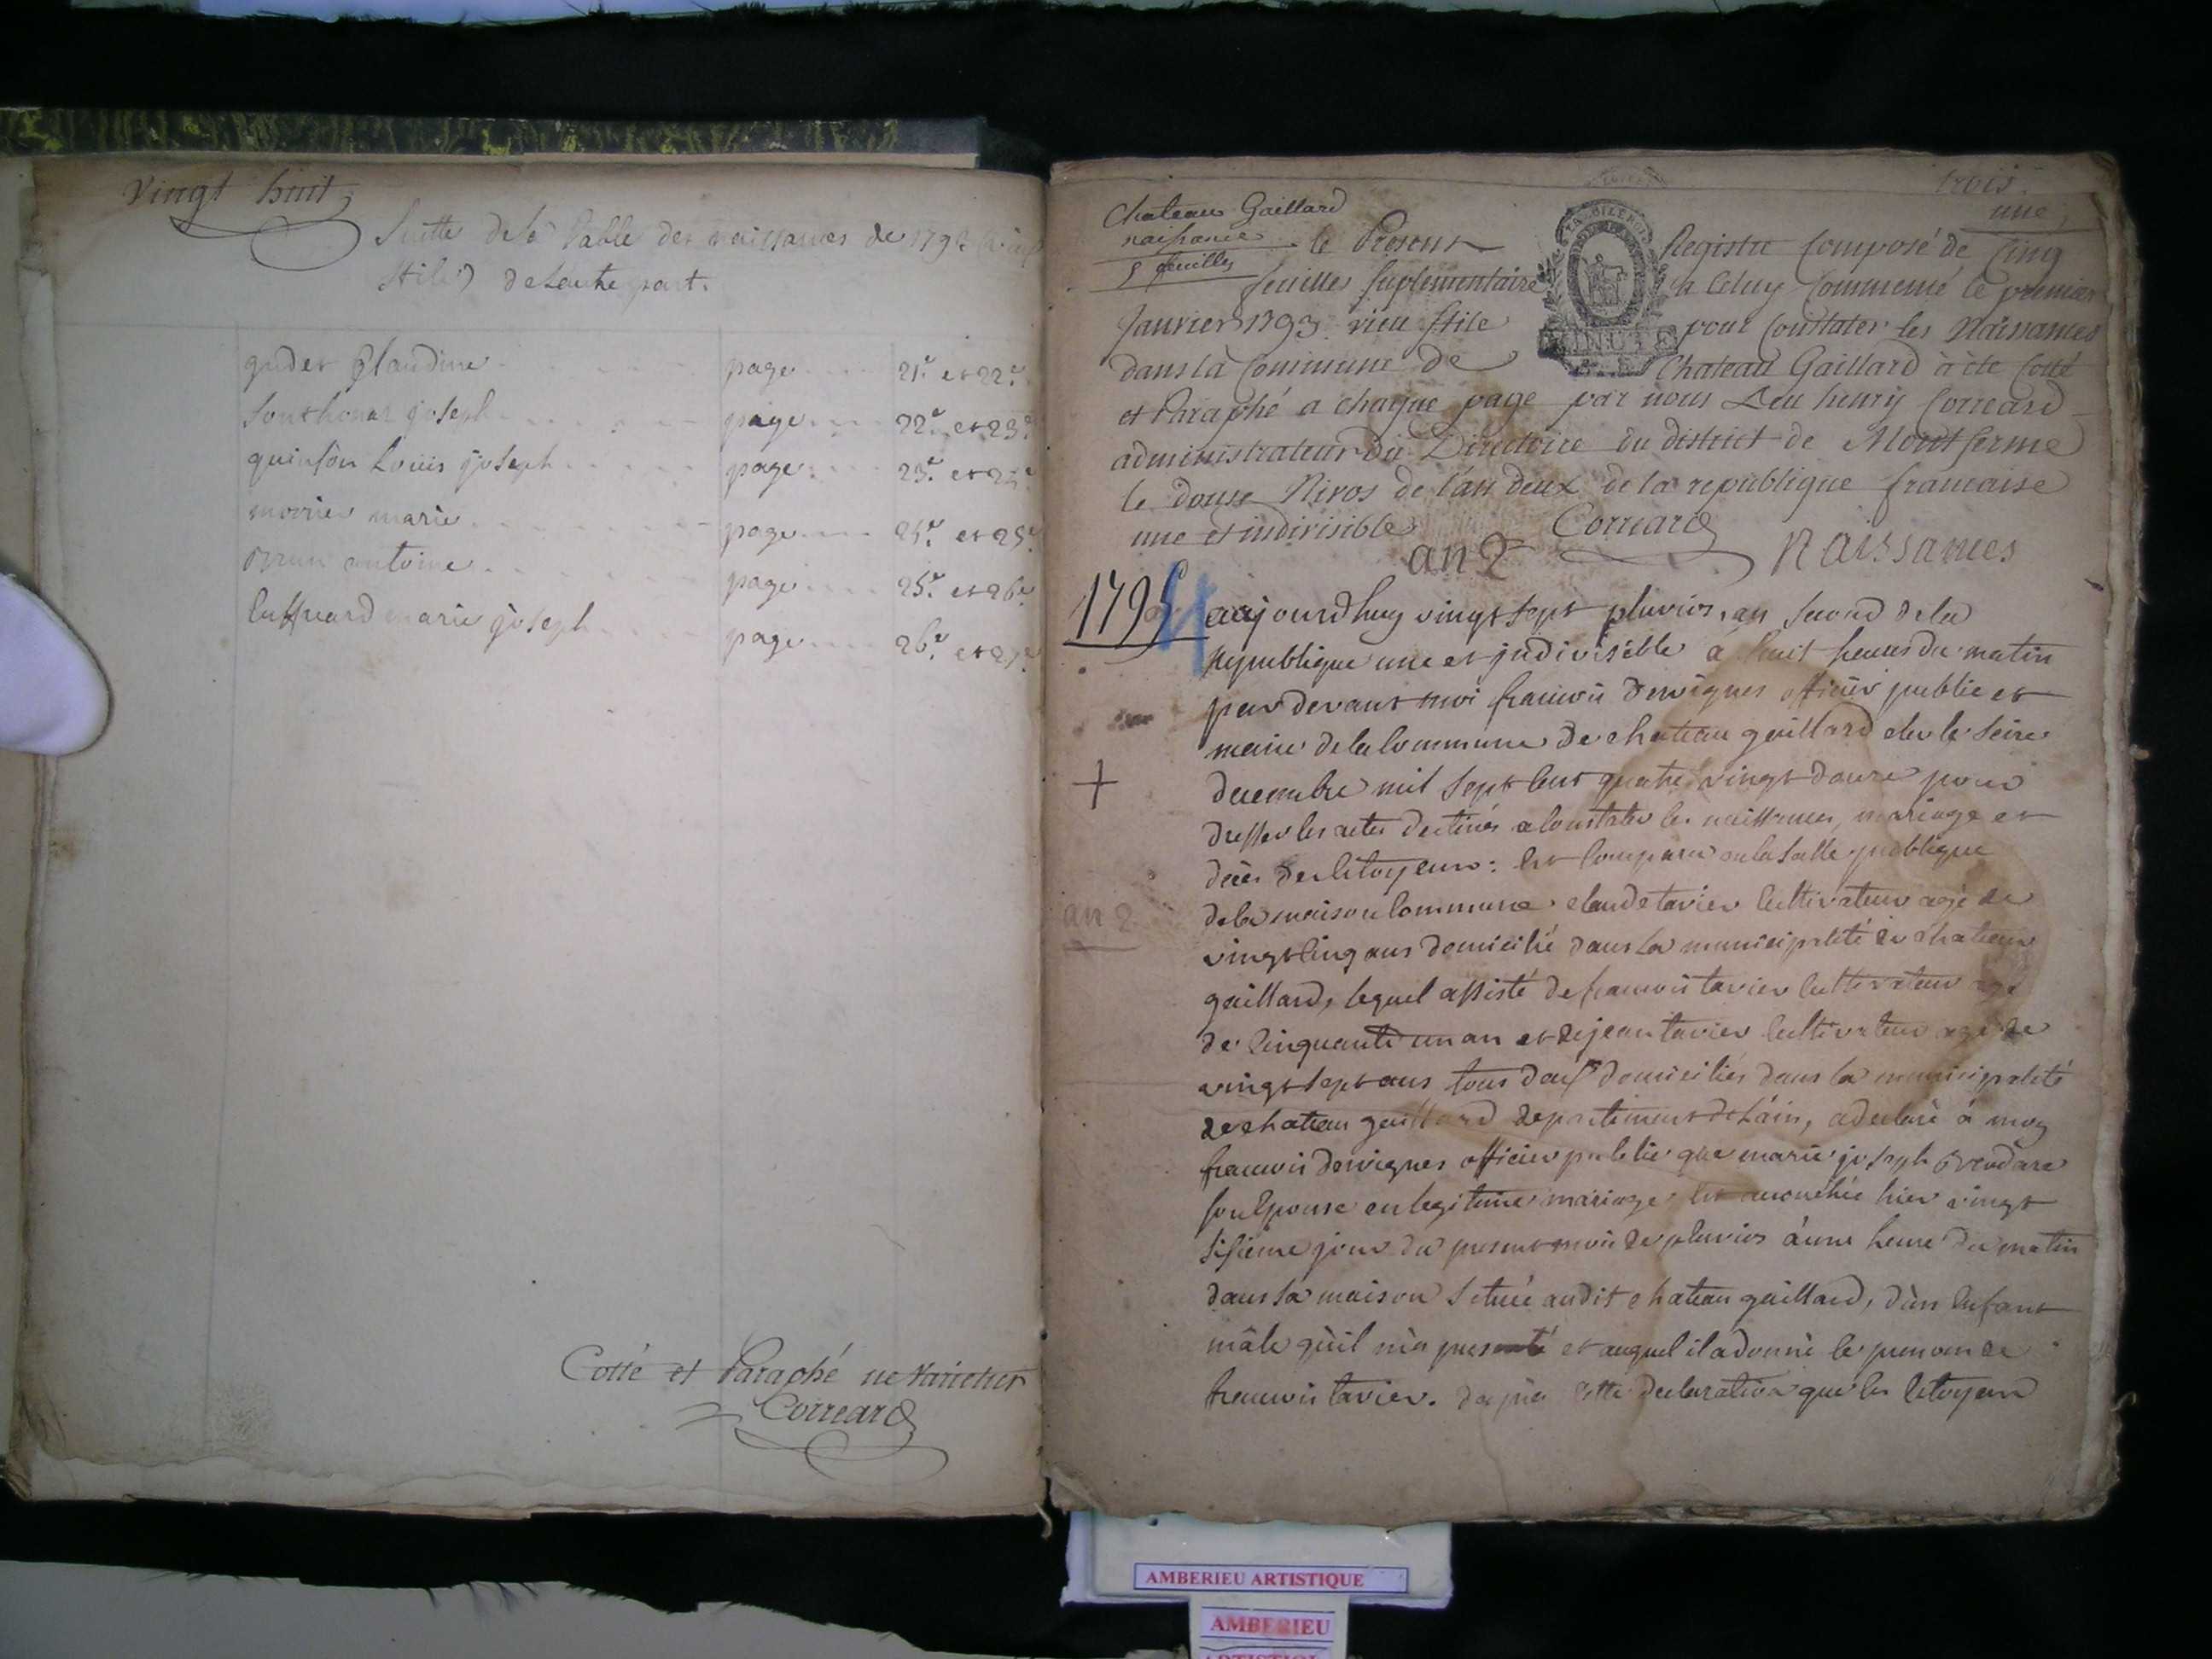 Vingt huit
Suitte de la Table des naissances de 1793
Stile) de Lautre part.
gudet Claudine page 21.e et 22.e
Southonax joseph page 22.e et 23.e
quinson Louis joseph page 23.e et
morrier marie page 24.e et 25.e
Brun antoine page 25.e et 26.e
marie joseph page 26.e et 27.e
Cotté et Paraphé ne varietur
Correard
trois
une
Chateau Gaillard
naissance
5 feuilles
le Present Registre Composé de Cinq
feuilles suplementaire a Celuy Commencé le premier
Janvier 1793 vieu stile pour Constater les Naissances
dans la Commune de Chateau Gaillard à été Cotté
et Paraphé a chaque page par nous Leu henry Correard
administrateur du Directoire du district de Montferme
le douse Nivos de l'an deux de la republique francaise
une et indivisible Correard
MINUTE
an 2 Naissances
1794 aujourdhuy vingt sept pluvios, an second de la
Republique une et indivisible à huit heures du matin
par devant moi francois Desvignes officier public et
maire de la Commune de chateau gaillard elu le seize
+ decembre mil sept Cent quatre vingt douze pour
dresser les actes destinés a Constater les naissances, mariage et
décès des Citoyens : Est Comparu en la salle publique
an 2 de la maison Commune claude tavier Cultivateur agé de
vingt Cinq ans domicilié dans la municipalité de chateau
gaillard, lequel assisté de francois tavier Cultivateur agé
de Cinquante un an et de jean tavier Cultivateur agé de
vingt sept ans tous deux domiciliés dans la municipalité
de chateau gaillard departement de L'ain, a declaré à moy
francois desvignes officier public que marie joseph
son Epouse en legitime mariage Est accouchée hier vingt
sisieme jour du present mois de pluvios à une heure du matin
dans sa maison située audit chateau gaillard, d'un Enfant
mâle qu'il m'a presenté et auquel il a donné le prenom de
francois tavier. d'après Cette declaration que les Citoyens
AMBERIEU ARTISTIQUE
AMBERIEU